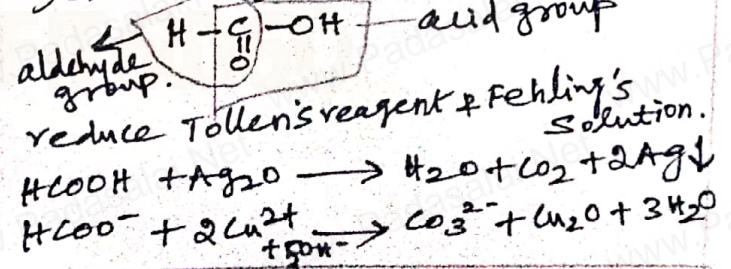 H-C-OH — acid group
||
O
aldehyde
group.
reduce Tollen's reagent & Fehling's
solution.
HCOOH + Ag2O ⟶ H2O + CO2 + 2Ag↓
HCOO⁻ + 2Cu²⁺ + 5OH⁻ ⟶ CO3²⁻ + Cu2O + 3H2O